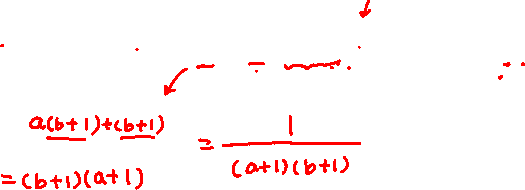 a(b+1)+(b+1)
=(b+1)(a+1)
= 1/((a+1)(b+1))